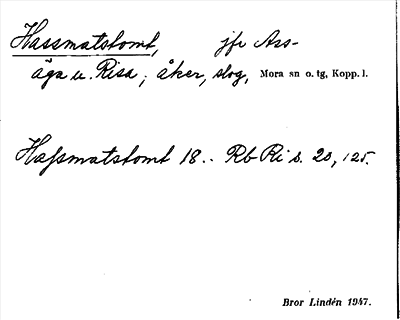 Hassmatstomt, jfr Ass-
äga u. Risa; åker, slog, Mora sn o. tg, Kopp. l.
Hafsmatstomt 18.. Rb Ri s. 23, 125.
Bror Lindén 1947.